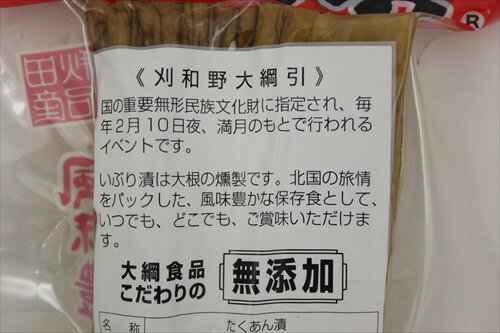 ®
《 刈和野大綱引 》
国の重要無形民族文化財に指定され、毎
年2月10日夜、満月のもとで行われる
イベントです。
いぶり漬は大根の燻製です。北国の旅情
をパックした、風味豊かな保存食として、
いつでも、どこでも、ご賞味いただけま
す。
大綱食品
こだわりの
無添加
名 称
たくあん漬